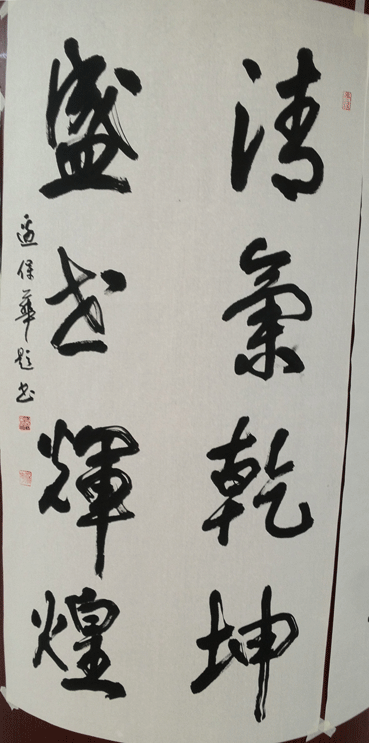 清氣乾坤
盛世輝煌
邊保華題书